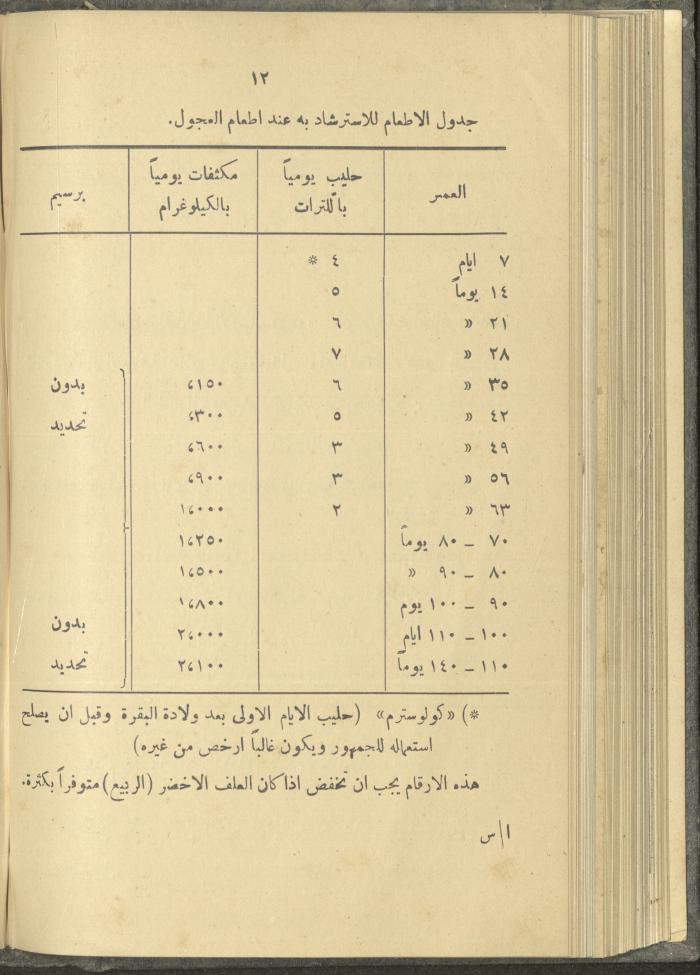 ١٢
جدول الاطعام للاسترشاد به عند اطعام العجول.
العمر	حليب يومياً باللترات	مكثفات يومياً بالكيلوغرام	برسيم
٧ ايام	٤ *
١٤ يوماً	٥
٢١ »	٦
٢٨ »	٧
٣٥ »	٦	،١٥٠	بدون
٤٢ »	٥	،٣٠٠	تحديد
٤٩ »	٣	،٦٠٠
٥٦ »	٣	،٩٠٠
٦٣ »	٢	١،٠٠٠
٧٠ – ٨٠ يوماً	١،٢٥٠
٨٠ – ٩٠ »	١،٥٠٠
٩٠ – ١٠٠ يوم	١،٨٠٠	بدون
١٠٠ – ١١٠ ايام	٢،٠٠٠
١١٠ – ١٤٠ يوماً	٢،١٠٠	تحديد
*) «كولوسترم» (حليب الايام الاولى بعد ولادة البقرة وقبل ان يصلح
استعماله للجمهور ويكون غالباً ارخص من غيره)
هذه الارقام يجب ان تخفض اذا كان العلف الاخضر (الربيع) متوفراً بكثرة.
ا/س